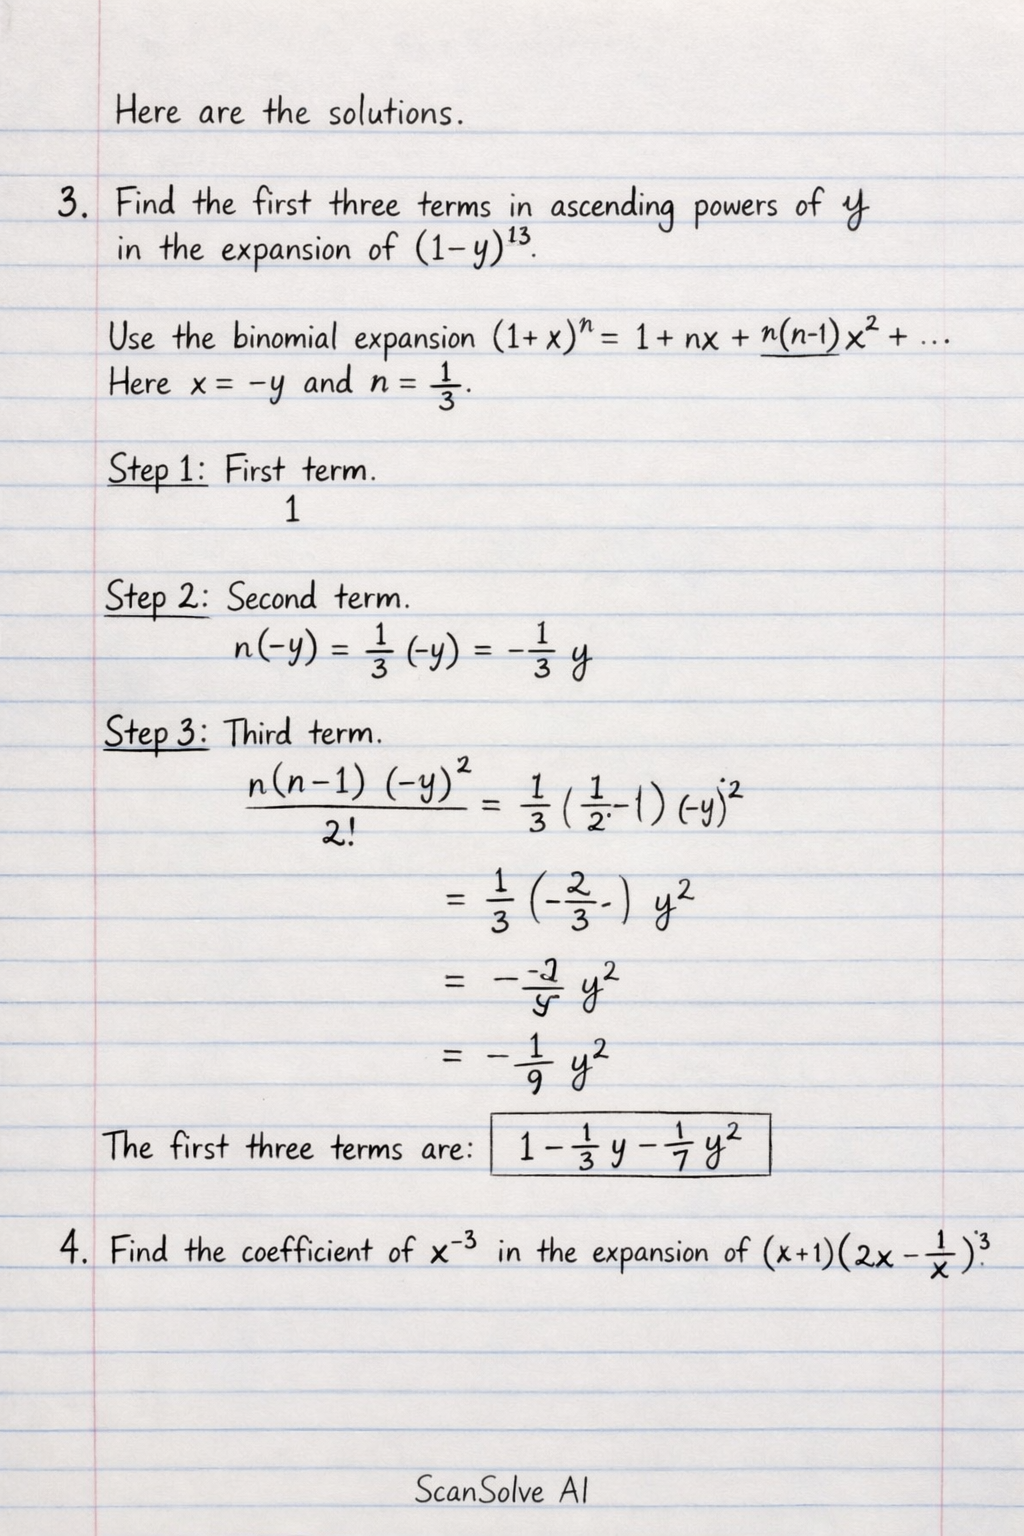 Here are the solutions.
3. Find the first three terms in ascending powers of y
in the expansion of (1-y)¹³.
Use the binomial expansion (1+x)ⁿ = 1 + nx + n(n-1)x² + ...
Here x = -y and n = 1/3.
Step 1: First term.
1
Step 2: Second term.
n(-y) = 1/3 (-y) = -1/3 y
Step 3: Third term.
n(n-1) (-y)²/2! = 1/3 (1/2-1) (-y)²
= 1/3 (-2/3-) y²
= - -2/ y²
= -1/9 y²
The first three terms are: 1 - 1/3 y - 1/7 y²
4. Find the coefficient of x⁻³ in the expansion of (x+1)(2x - 1/x)³.
ScanSolve AI